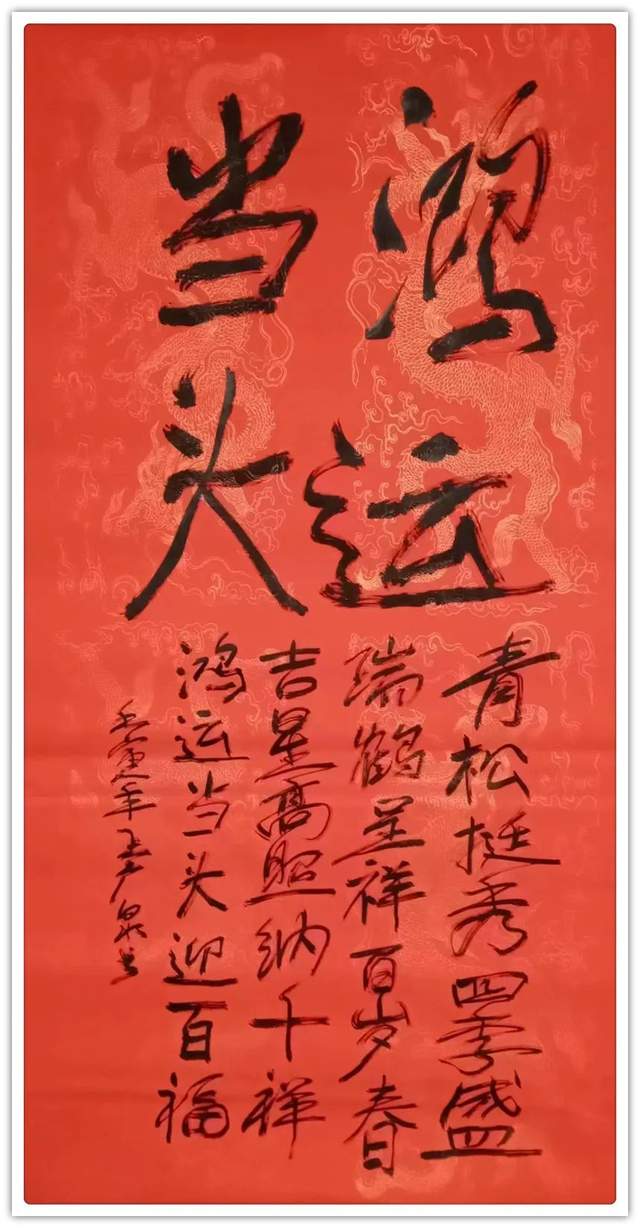 鸿运
当头
青松挺秀四季盛
瑞鹤呈祥百岁春
吉星高照纳千祥
鸿运当头迎百福
壬寅年